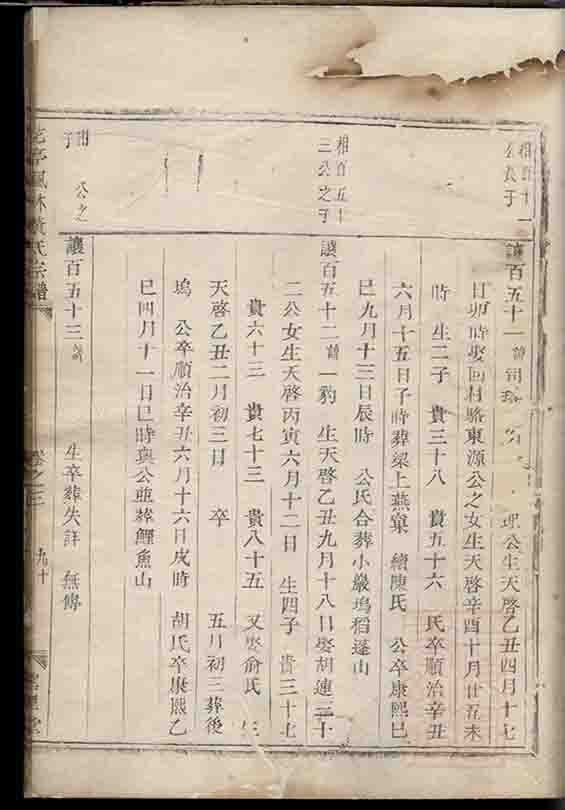 相百十一
公長子
讓百五十一 諱司 公 理公生天啓乙丑四月十七
日卯時娶回村駱東源公之女生天啓辛酉十月廿五未
時 生二子 貴三十八 貴五十六 氏卒順治辛丑
六月十五日子時葬梁上燕窠 續陳氏 公卒康熙巳
巳九月十三日辰時 公氏合葬小巖塢稻蓬山
相百五十
三公之子
讓百五十二 諱一豹 生天啓乙丑九月十八日娶胡連三十
二公女生天啓丙寅六月十二日 生四子 貴三十七
貴六十三 貴七十三 貴八十五 又娶俞氏 生
天啓乙丑二月初三日 卒 五月初三葬後
塢 公卒順治辛丑六月十六日戌時 胡氏卒康熙乙
巳四月十一日巳時與公並葬鯉魚山
相 公之
子
讓百五十三 諱 生卒葬失詳 無傳
亭風林黃氏宗譜 卷之三 九十 堂